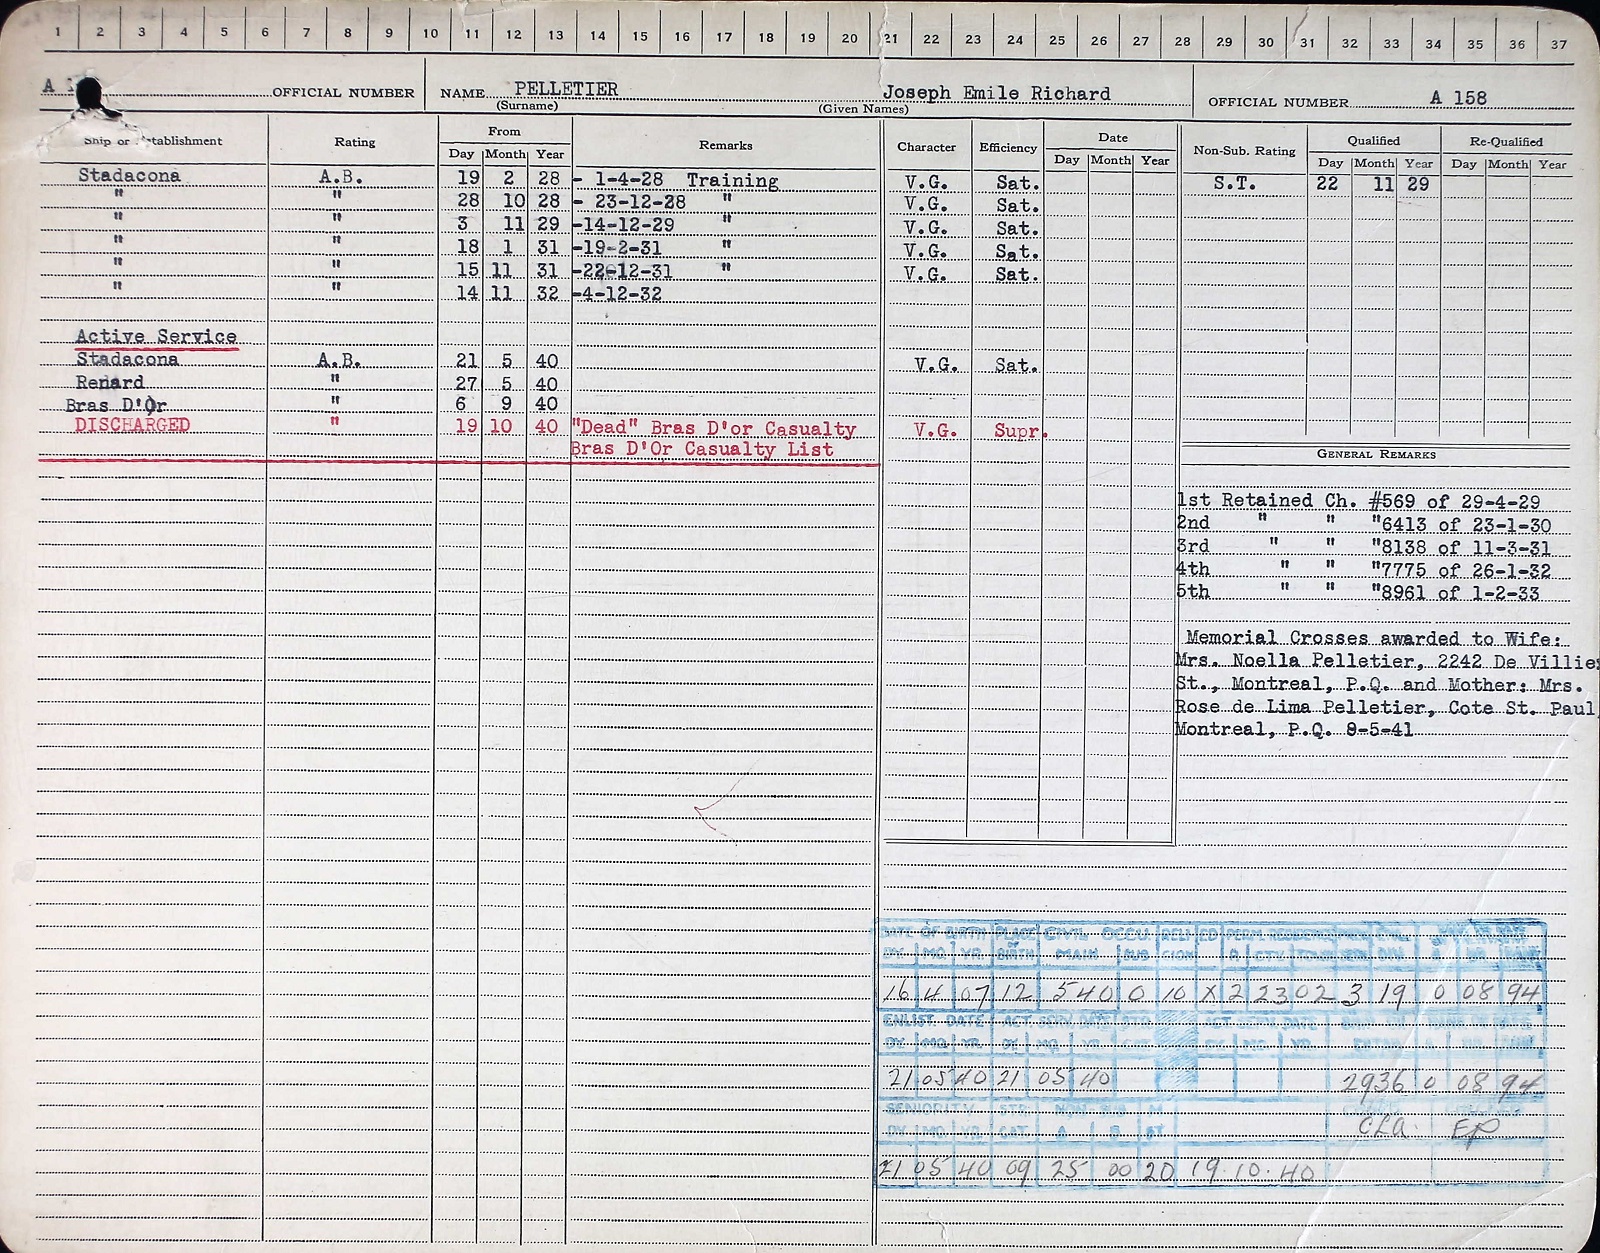 1 2 3 4 5 6 7 8 9 10 11 12 13 14 15 16 17 18 19 20 21 22 23 24 25 26 27 28 29 30 31 32 33 34 35 36 37
A OFFICIAL NUMBER NAME PELLETIER Joseph Emile Richard OFFICIAL NUMBER A 158
(Surname) (Given Names)
Ship or Establishment Rating From Remarks Character Efficiency Date Non-Sub. Rating Qualified Re-Qualified
Day Month Year Day Month Year Day Month Year Day Month Year
Stadacona A.B. 19 2 28 - 1-4-28 Training V.G. Sat. S.T. 22 11 29
" " 28 10 28 - 23-12-28 " V.G. Sat.
" " 3 11 29 -14-12-29 " V.G. Sat.
" " 18 1 31 -19-2-31 " V.G. Sat.
" " 15 11 31 -22-12-31 " V.G. Sat.
" " 14 11 32 -4-12-32
Active Service
Stadacona A.B. 21 5 40 V.G. Sat.
Renard " 27 5 40
Bras D'Or " 6 9 40
DISCHARGED " 19 10 40 "Dead" Bras D'or Casualty V.G. Supr.
Bras D'Or Casualty List
GENERAL REMARKS
1st Retained Ch. #569 of 29-4-29
2nd " " "6413 of 23-1-30
3rd " " "8138 of 11-3-31
4th " " "7775 of 26-1-32
5th " " "8961 of 1-2-33
Memorial Crosses awarded to Wife:
Mrs. Noella Pelletier, 2242 De Villie
St., Montreal, P.Q. and Mother: Mrs.
Rose de Lima Pelletier, Cote St. Paul
Montreal, P.Q. 8-5-41
DATE OF BIRTH PLACE CIVIL OCCU.
DY MO YR BIRTH MAIN SUB
16 4 07 12 540 0 10 X 2 23 02 3 19 0 08 94
ENLIST. DATE ACT. SERV. DATE
DY MO YR DY MO YR
21 05 40 21 05 40 2936 0 08 94
SENIORITY
DY MO YR CAT. A B
CLA. EP
21 05 40 09 25 00 20 19.10.40